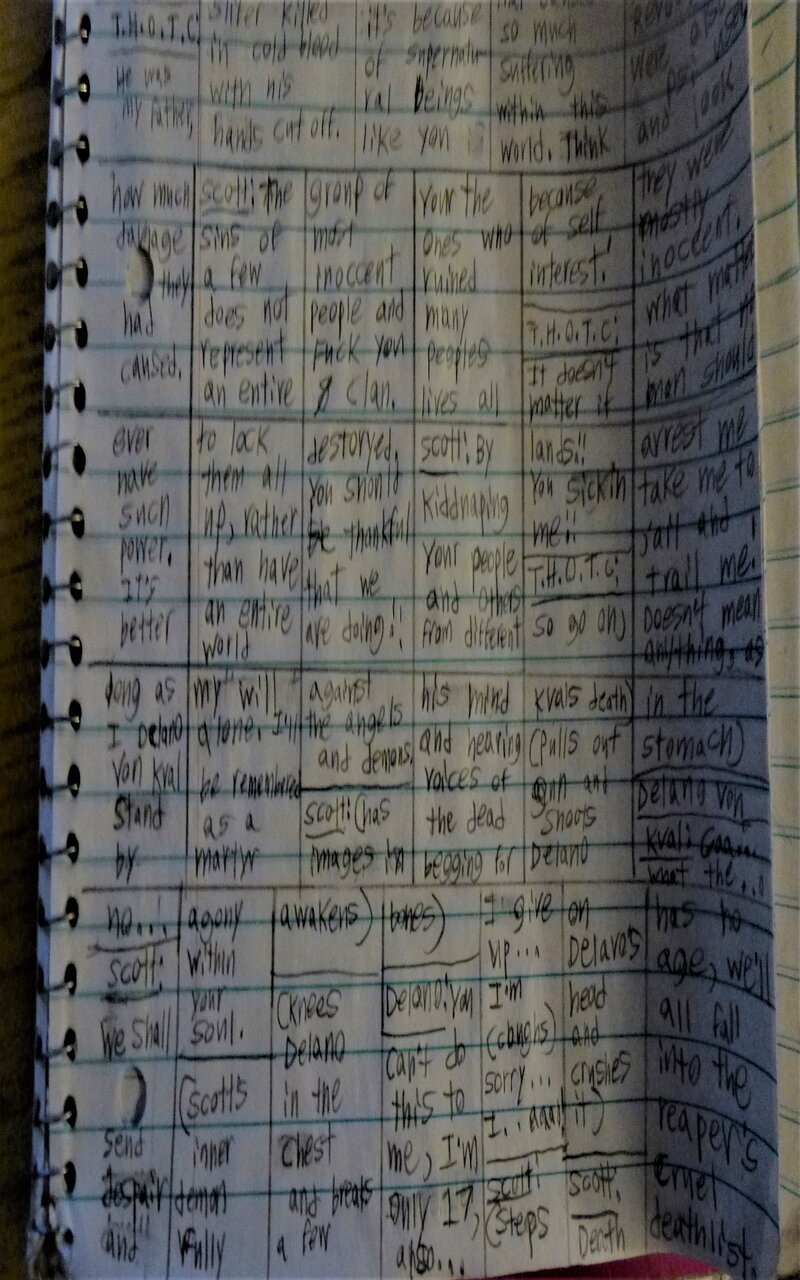 T.H.O.T.C:
He was
my father,
sister killed
in cold blood
with his
hands cut off.
it's because
of supernatu-
ral beings
like you is
so much
suffering
within this
world. Think
were
psi
and look
how much
damage
they
had
caused.
scott: the
sins of
a few
does not
represent
an entire
group of
most
inoccent
people and
Fuck you
& clan.
Your the
ones who
ruined
many
peoples
lives all
because
of self
interest!
T.H.O.T.C:
It doesn't
matter if
they were
mostly
inoccent.
what
is that no
man should
ever
have
such
power.
It's
better
to lock
them all
up, rather
than have
an entire
world
destoryed.
You should
be thankful
that we
are doing!!
scott: By
kiddnaping
your people
and others
from different
lands!!
You sickin
me!!
T.H.O.T.C:
so go on,
arrest me
take me to
jail and
trail me.
Doesn't mean
anything, as
long as
I Delano
von kval
stand
by
my "will"
alone. I'll
be remembered
as a
martyr
against
the angels
and demons.
scott: (has
images in
his mind
and hearing
voices of
the dead
begging for
kvals death)
(Pulls out
gun and
shoots
Delano
in the
stomach)
Delano von
kval: Gaa...
what the...
no...!
scott:
We shall
send
despair
and
agony
within
your
soul.
(scott's
inner
demon
fully
awakens)
(knees
Delano
in the
chest
and breaks
a few
bones)
Delano: You
can't do
this to
me, I'm
only 17,
also...
I give
up...
I'm
(coughs)
sorry...
I..
scott:
(steps
on
Delano's
head
and
crushes
it)
scott.
Death
has no
age, we'll
all fall
into the
reaper's
cruel
deathlist.